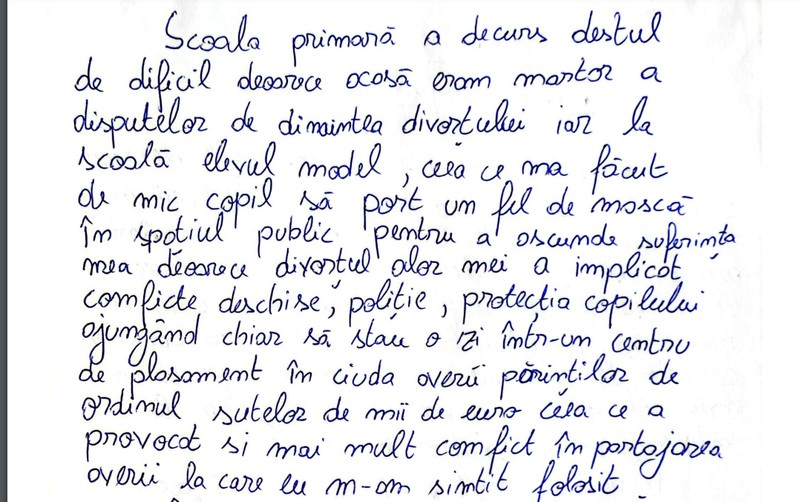 Scoala primară a decurs destul
de dificil deoarece acasă eram martor a
disputelor de dinaintea divortului iar la
scoală elevul model, ceea ce ma făcut
de mic copil să port un fel de mască
în spațiul public pentru a ascunde suferința
mea deoarece divorțul alor mei a implicat
conflicte deschise, poliție, protecția copilului
ajungând chiar să stau o zi într-un centru
de plasament în ciuda averii părinților de
ordinul sutelor de mii de euro ceea ce a
provocat si mai mult conflict în partajarea
averii la care eu m-am simtit folosit.